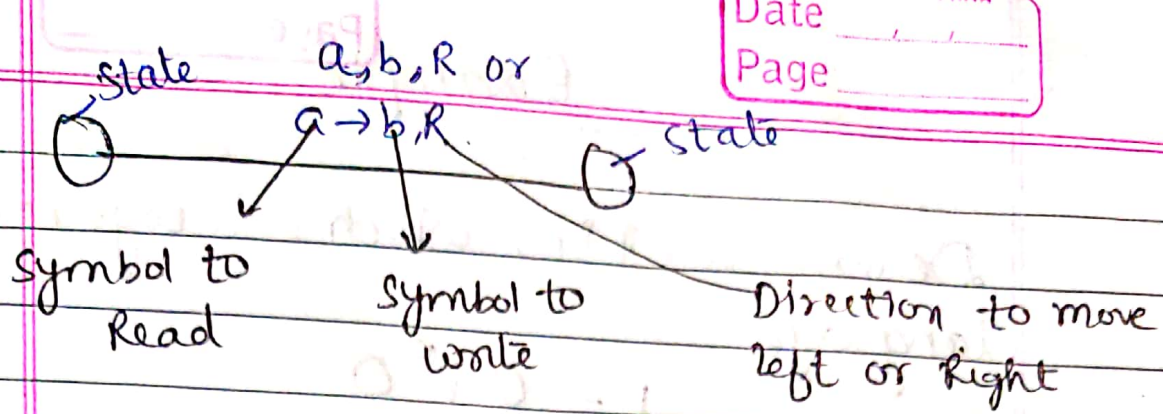 Date
Page
State
a,b,R or
a→b,R
state
Symbol to
Read
Symbol to
write
Direction to move
left or Right